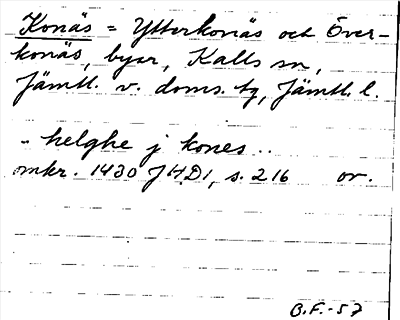 Konäs = Ytterkonäs och Över-
konäs, byar, Kalls sn,
Jämtl. v. doms. tg, Jämtl. l.
.. helghe j kones ..
omkr. 1430 JHD1, s. 216 or.
B.F.-57